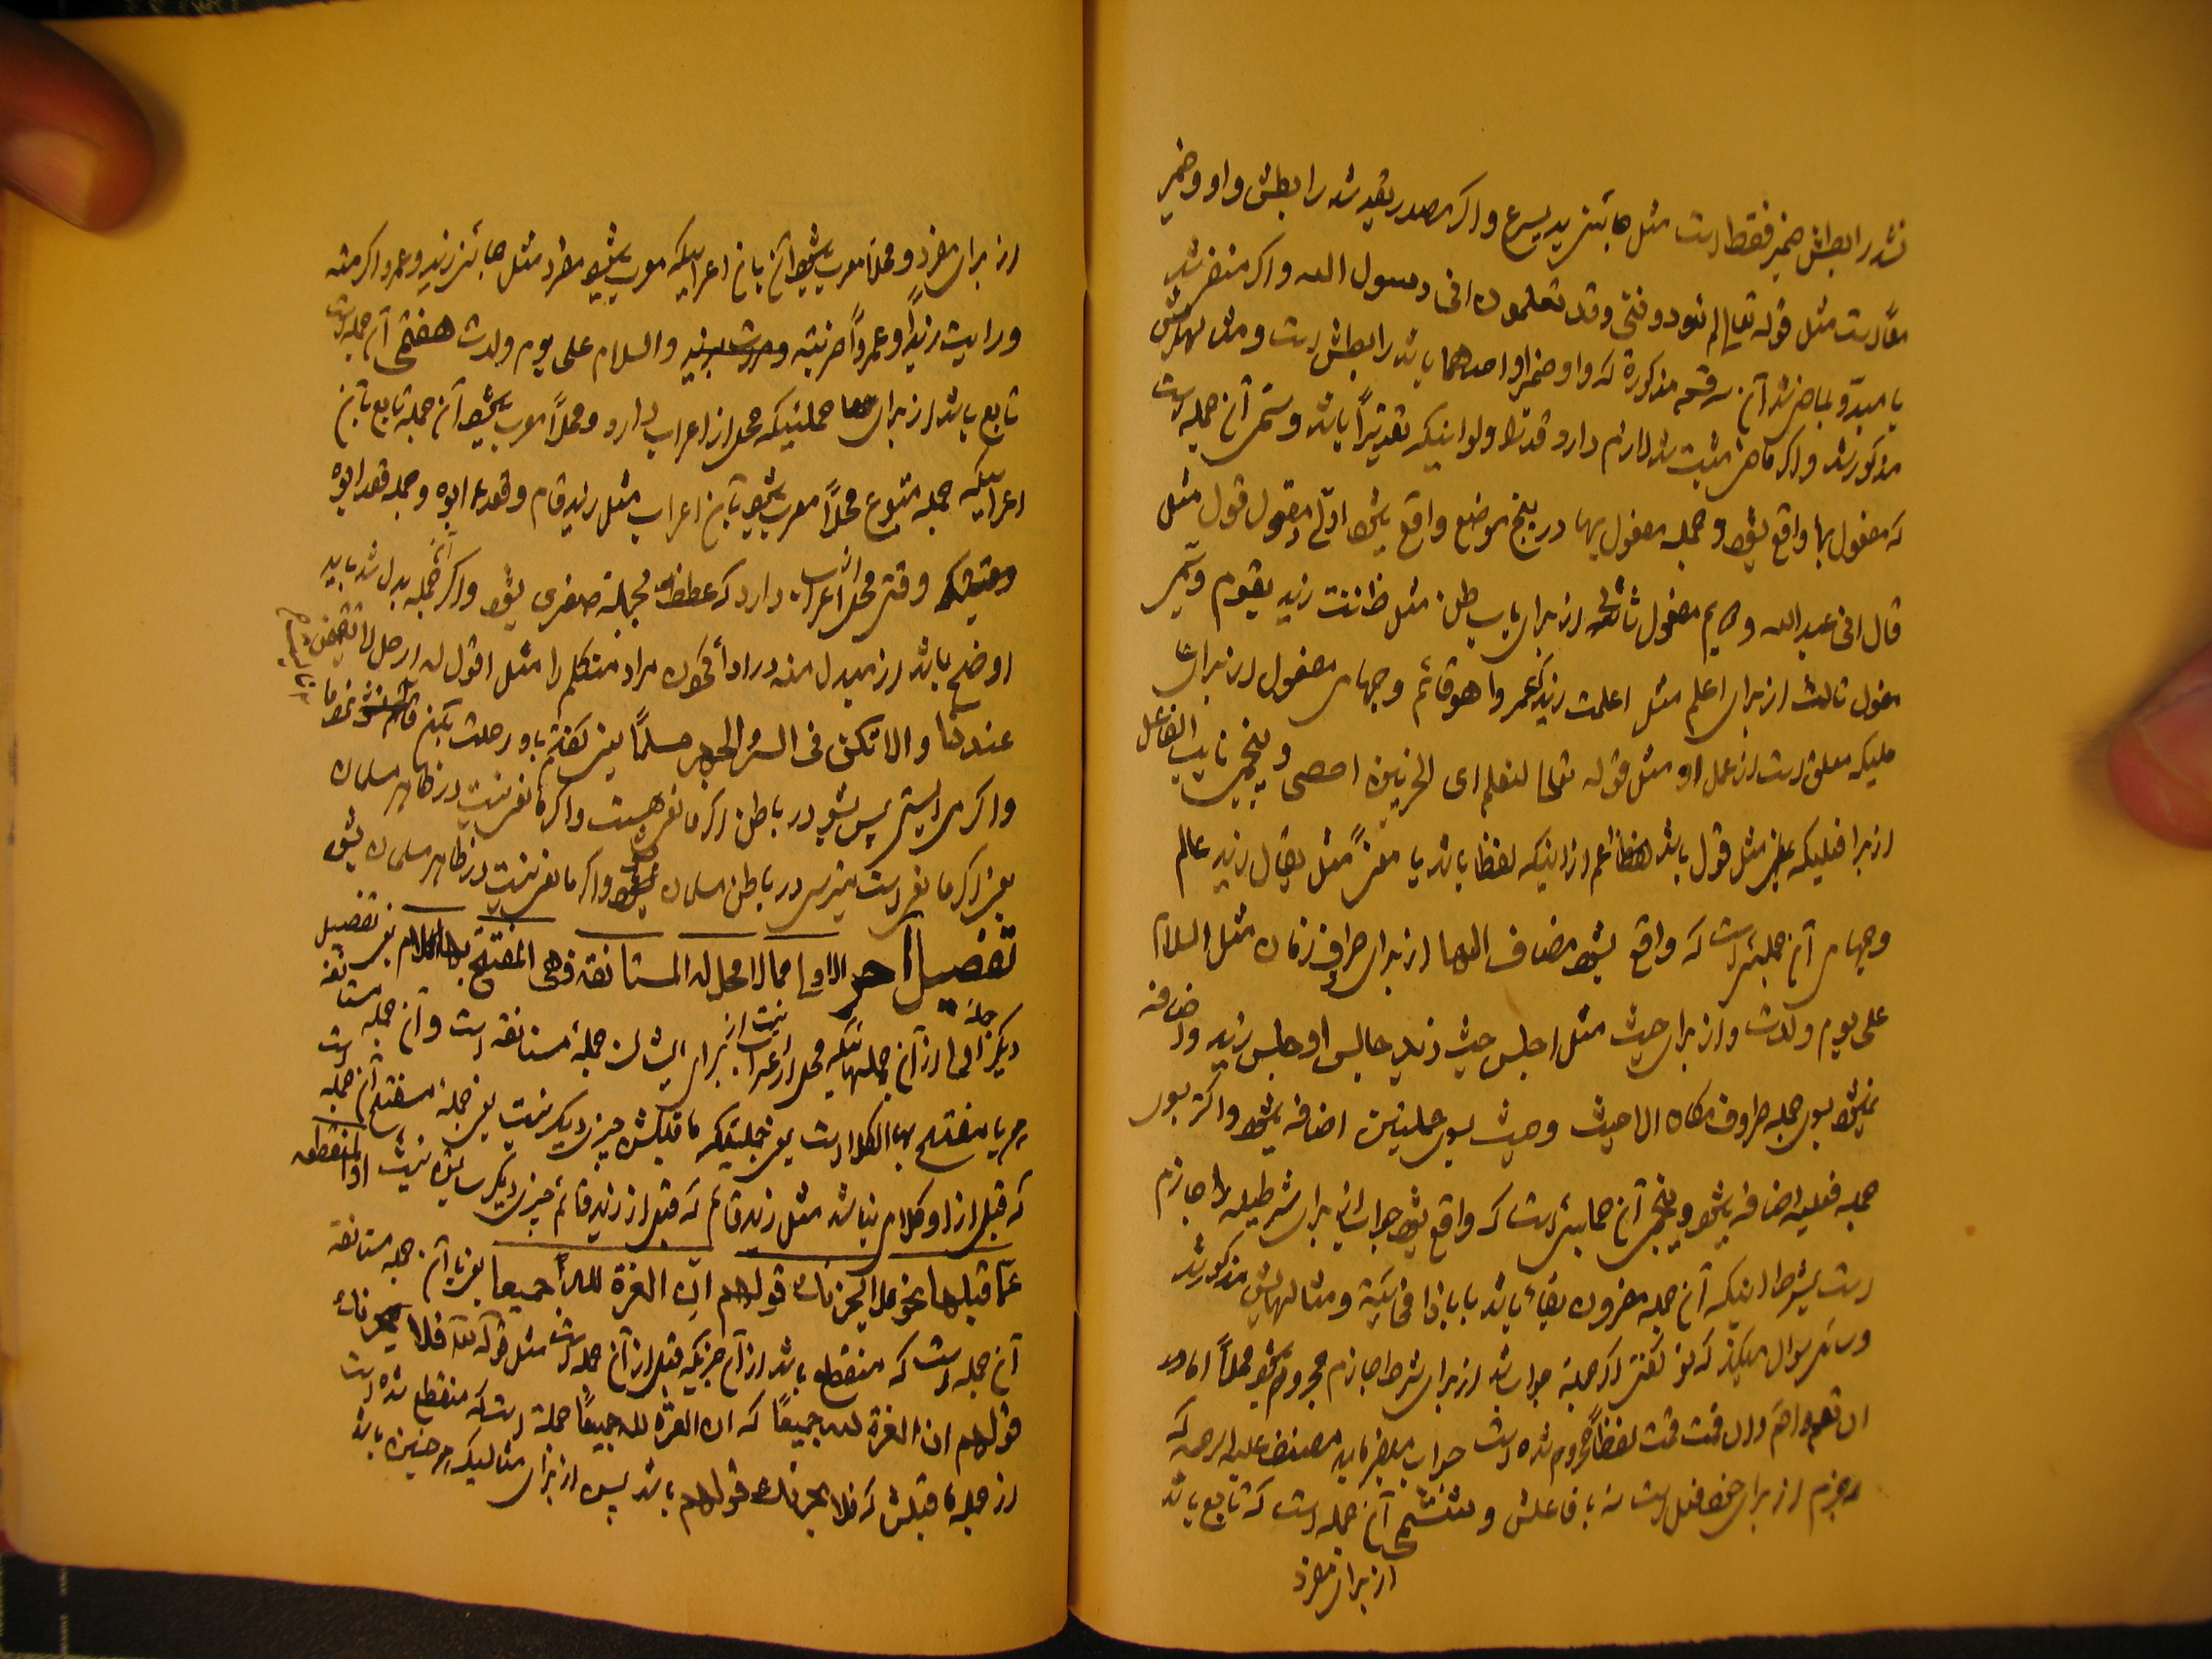 نشد رابطش ضمیر فقط است مثل جائنی زید یسرع و اکر مصدر بقد شد رابطش واو و ضمیر
معًا است مثل قوله تعالی لم تؤذوننی و قد تعلمون انی رسول الله و اکر منفی شد
یا مبدّو بماضی شد آن سه قسم مذکورة که واو و ضمیر او احدهما باشد رابطش است و مثالهایش
مذکور شد و اکر ماضی مثبت شد لازم دارد قد را ولو اینکه تقدیراً باشد و سیّمی آن جمله است
که مفعول بها واقع بشود و جمله مفعول بها در پنج موضع واقع بشود اوّلی مقول قول مثل
قال انی عبد الله و دویم مفعول ثانی از برای باب ظن مثل ظننت زید یقوم و سیّمی
مفعول ثالث از برای اعلم مثل اعلمت زید عمروا هو قائم و چهارمی مفعول از برای
ملیکه معلق است از عمل او مثل قوله تعالی لنعلم ای الحزبین احصی و پنجمی نایب الفاعل
از برا فعلیکه مثل قول باشد اعم از اینکه لفظا باشد یا معنیً مثل یقال زید عالم
و چهارمی آن جمله‌ئی است که واقع بشود مضاف الیها از برای ظروف زمان مثل السلام
علی یوم ولدت و از برای حیث مثل اجلس حیث زید جالس او جلس زید و اضافه
نمیشود بسوی جمله ظروف مکان الا حیث و حیث بسوی جملتین اضافه میشود و اکثر بسوی
جمله فعلیه اضافه میشود و پنجمی آن جمله‌ئی است که واقع بشود جواب از برای شرطیکه جازم
است بشرط اینکه آن جمله مقرون بفاء باشد یا باذا فجائیة و مثالهایش مذکور شد
و سائل سوال میکند که تو کفتی اکر جمله جواب شد از برای شرط جازم مجزوم میشود محلاً اما در
ان تقم اقم و ان قمت قمت لفظاً مجزوم شده است جواب میفرماید مصنف علیه الرحمه که
جزم از برای خود فعل است نه با فاعلش و ششمی آن جمله است که تابع باشد
از برای مفرد
از برای مفرد و محلاً معرب میشود آن بان اعرابیکه معرب میشود مفرد مثل جائنی زید و عمرو اکرمته
و رایت زیداً و عمرواً ضربته و مررت بزید و السلام علی یوم ولدت هفتمی آن جمله است
تابع باشد از برای جملئیکه محل از اعراب دارد و محلاً معرب میشود آن جمله تابع بآن
اعرابیکه جمله متبوع محلاً معرب میشود بآن اعراب مثل زید قام و قعد ابوه و جمله قعد ابوه
وقتی محل از اعراب دارد که عطف بجمله صغری بشود و اکر آن جمله بدل شد باید
اوضح باشد از مبدل منه در ادا نمودن مراد متکلم را مثل اقول له ارحل لا تقیمن
عندنا و الا فکن فی السر و الجهر مسلمًا یعنی کفتم باو رحلت بکن
و اکر می ایستی پس بشو در باطن اکر مانعی هست و اکر مانعی نیست در ظاهر مسلمان
یعنی اکر مانعی است در باطن مسلمان بشو و اکر مانعی نیست در ظاهر مسلمان بشو
تفصیل آخر الاولی مما لا محل له المستانفة فهی المفتتح بها الکلام یعنی تفصیل
دیکر اولی از آن جملهائیکه محل از اعراب نیست از برای ایشان جملهٔ مستانفه است و آن جمله مستانفه
یا مفتتح بها الکلام است یعنی جملئیکه ماقبلش چیزی دیکر نیست یعنی جملهٔ مفتتح آن جمله است
که قبل از او کلامی نباشد مثل زید قائم که قبل از زید قائم چیزی دیکر نیست او المنقطعه
عمّا قبلها نحو فلا یحزنک قولهم انّ العزة لله جمیعا یعنی یا آن جمله مستانفه
آن جمله است که منقطع باشد از آن چیزیکه قبل از آن جمله است مثل قوله تعالی فلا یحزنک
قولهم ان العزة لله جمیعًا که ان العزة لله جمیعًا جمله است که منقطع شده است
از جمله ماقبلش که فلا یحزنک قولهم باشد پس از برای مثالیکه چنین باشد